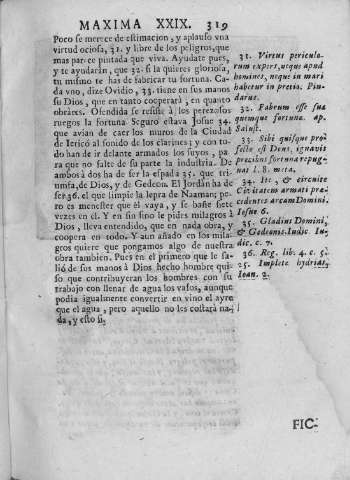 MAXIMA XXIX. 319
Poco se merece de estimacion, y aplauso vna
virtud ociosa, 31. y libre de los peligros, que
mas parece pintada que viva. Ayudate pues,
y te ayudarán, que 32. si la quieres gloriosa,
tu mismo te has de fabricar tu fortuna. Ca-
da vno, dize Ovidio, 33. tiene en sus manos
su Dios, que en tanto cooperará, en quanto
obràres. Ofendida se resiste à los perezosos
ruegos la fortuna Seguro estava Josuè 34.
que avian de caer los muros de la Ciudad
de Jericó al sonido de los clarines; y con to-
do han de ir delante armados los suyos, pa-
ra que no falte de su parte la industria. De
ambos à dos ha de ser la espada 35. que tri-
unfa, de Dios, y de Gedeon. El Jordàn ha de
ser 36. el que limpie la lepra de Naaman; pe-
ro es menester que él vaya, y se bañe siete
vezes en èl. Y en fin sino le pides milagros à
Dios, lleva entendido, que en nada obra, y
coopera en todo. Y aun añado en los mila-
gros quiere que pongamos algo de nuestra
obra tambien. Pues en el primero que le sa-
lió de sus manos à Dios hecho hombre qui-
so que contribuyeran los hombres con su
trabajo con llenar de agua los vasos, aunque
podia igualmente convertir en vino el ayre
que el agua, pero aquello no les costará na-
da, y esto si.
31. Virtus periculo-
rum expers, neque apud
homines, neque in mari
habetur in pretio. Pin-
darus.
32. Fabrum esse sua
quemque fortuna. ap.
Salust.
33. Sibi quisque pro-
fecto est Deus, ignavis
precibus fortuna repug-
nat l. 8. meta.
34. Ite, & circuite
Civitatem armati præ-
cedentes arcam Domini.
Iosue 6.
35. Gladius Domini,
& Gedeonis. Iudic. Iu-
dic. c. 7.
36. Reg. lib. 4. c. 5.
25. Implete hydrias.
Ioan. 2.
FIC-